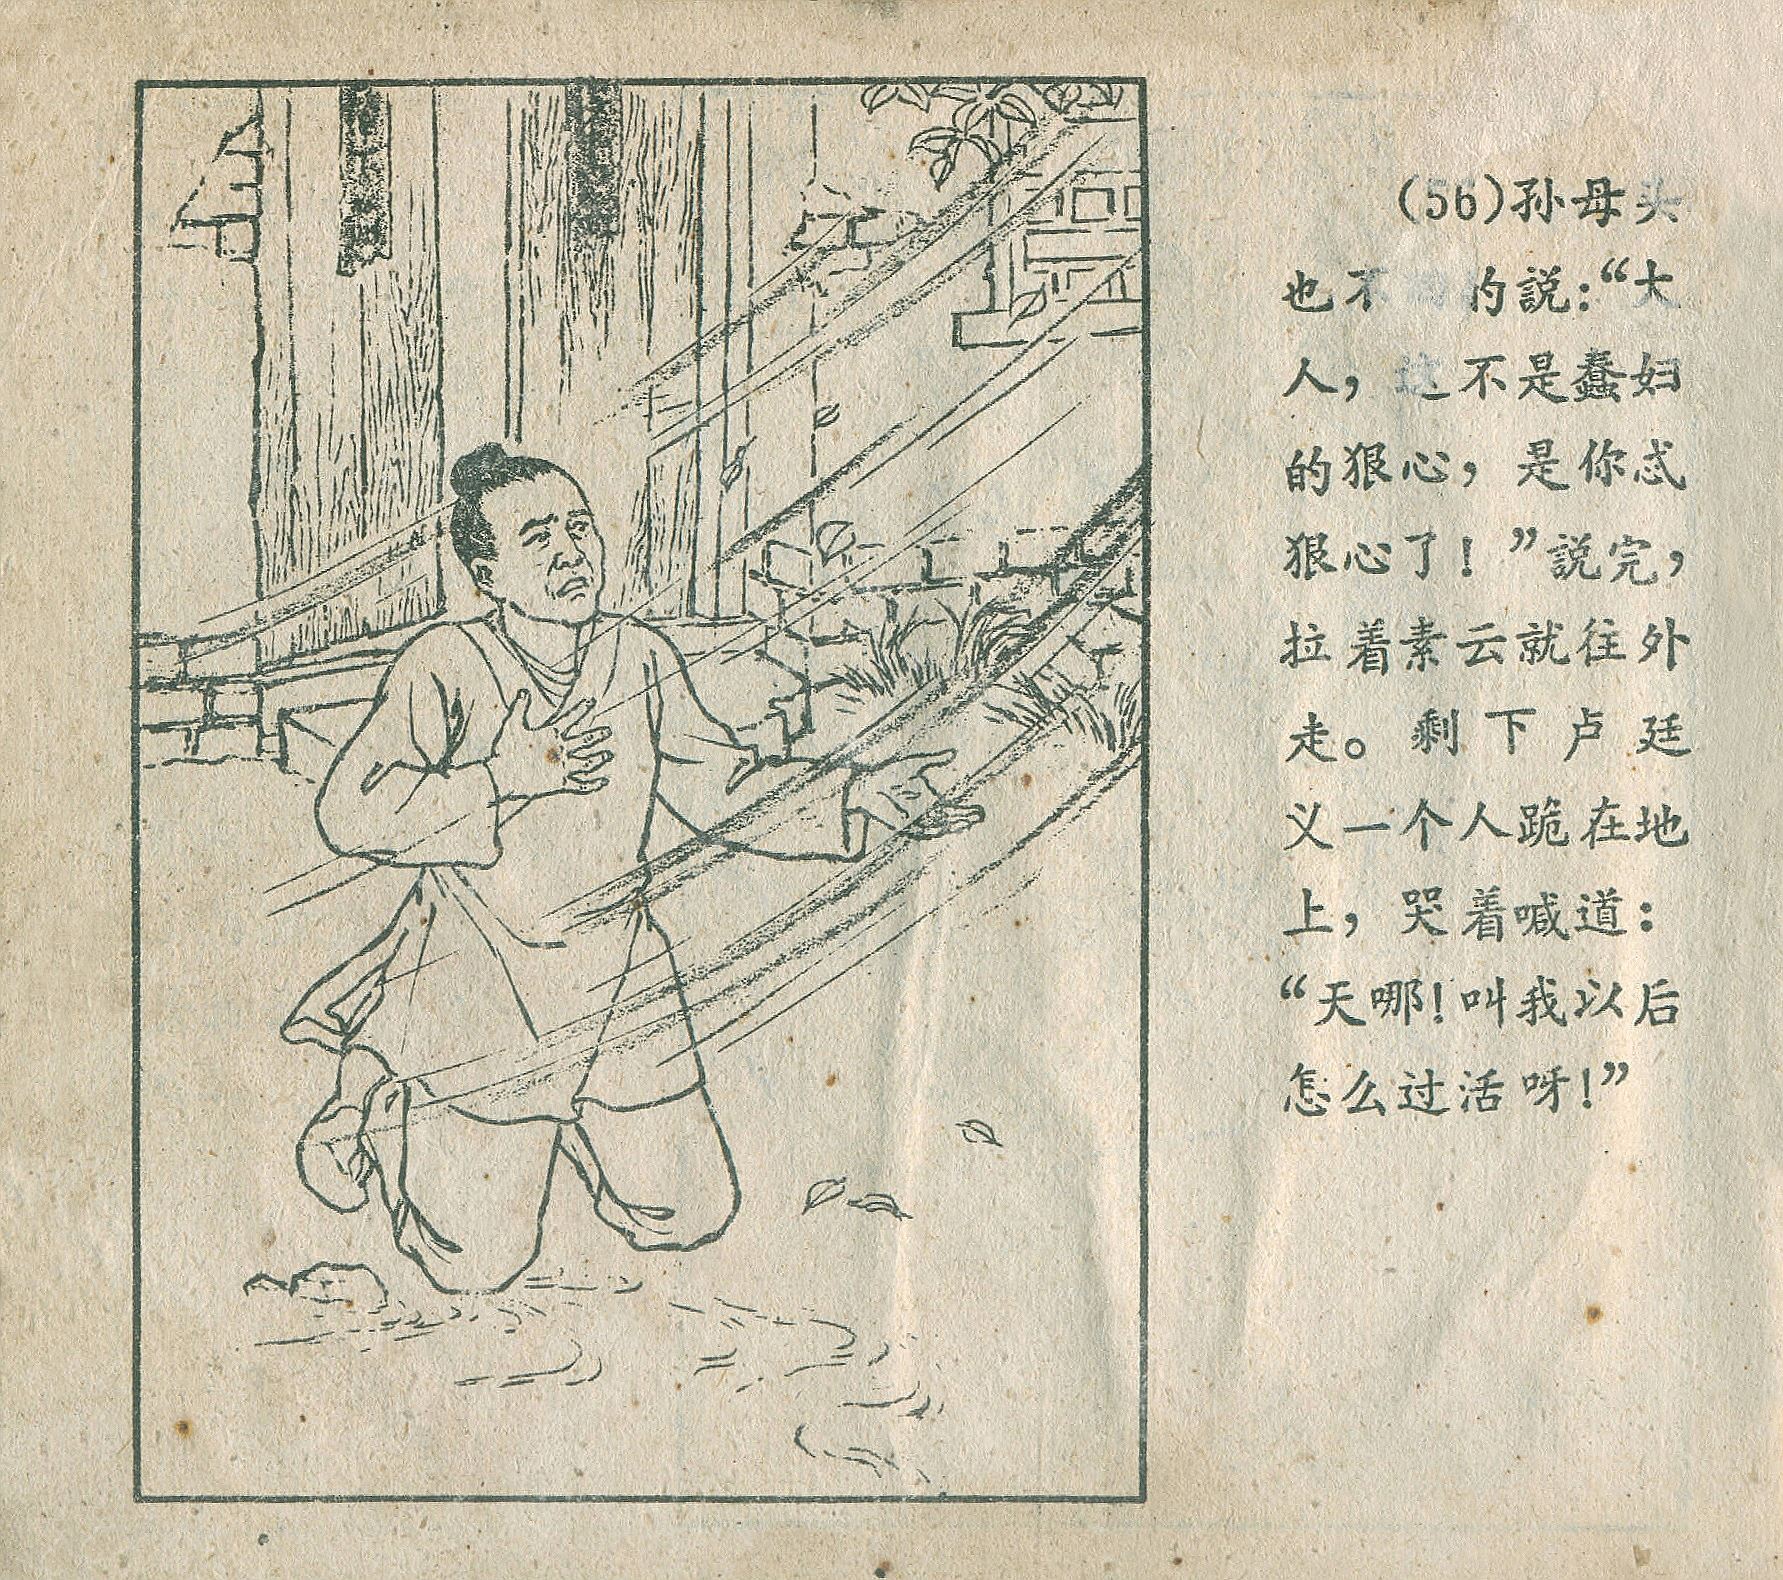 (56)孙母头
也不 的説:“大
人,这不是蠢妇
的狠心,是你忒
狠心了!”説完,
拉着素云就往外
走。剩下卢廷
义一个人跪在地
上,哭着喊道:
“天哪!叫我以后
怎么过活呀!”